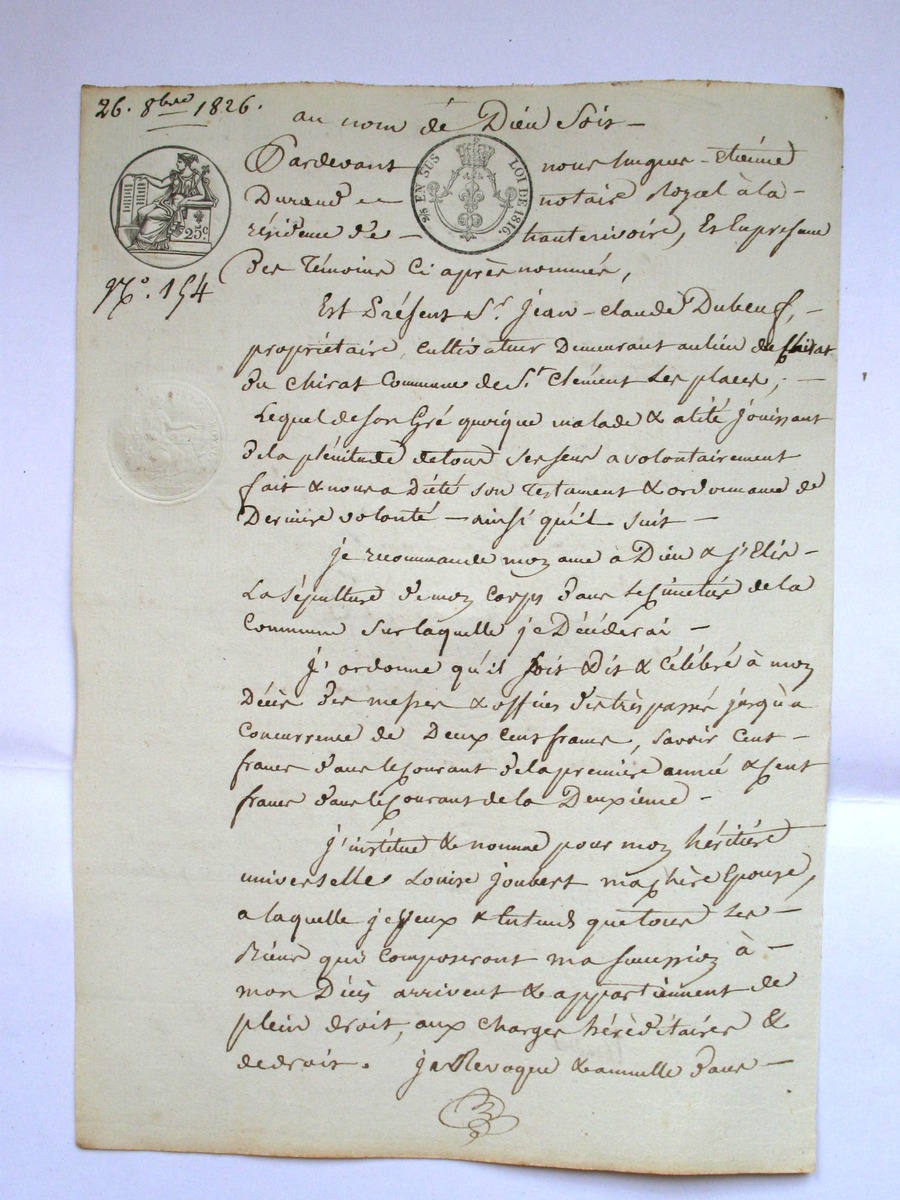 26. 8bre 1826.
au nom dé Dieu Soit —
Pardevant nous hugues - étiénne
Durand notaire royal à la —
résidence de — hauterivoire, Et En presence
Des Témoins Ci après nommés,
25 EN SUS LOI DE 1816.
25c.
No. 154
Est Présent Sr. Jéan - claude Dubeuf, —
propriétaire, cultivateur Demeurant au lieu du Chirat
Du Chirat Commune de St. Clément Les places, —
Lequel de son Gré quoique malade & alité jouissant
De la plénitude de tous ses sens a volontairement
fait & nous a Dicté son Testament & ordonnance de
Derniere volonté — ainsi qu'il suit —
je recommande mon ame à Dieu & j'Elis —
La Sépulture de mon Corps dans Le Cimetiere de la
Commune Sur laquelle je Décéderai —
J'ordonne qu'il soit Dit & Célébré à mon
Décès Des messes & offices Des trèspassés jusqu'a
Concurrence de Deux Cent francs, savoir Cent —
francs Dans le Courant De la premiere année & Cent
francs Dans le Courant de la Deuxiéme —
J'institue & nomme pour mon héritiére
universelle Louise joubert ma chère Epouse,
a laquelle je veux & Entends que tous Les —
Biens qui Composeront ma Succession à —
mon Décès arrivent & appartiennent de
plein droit, aux charges héréditaires &
de droit. je Revoque & annulle Dans —